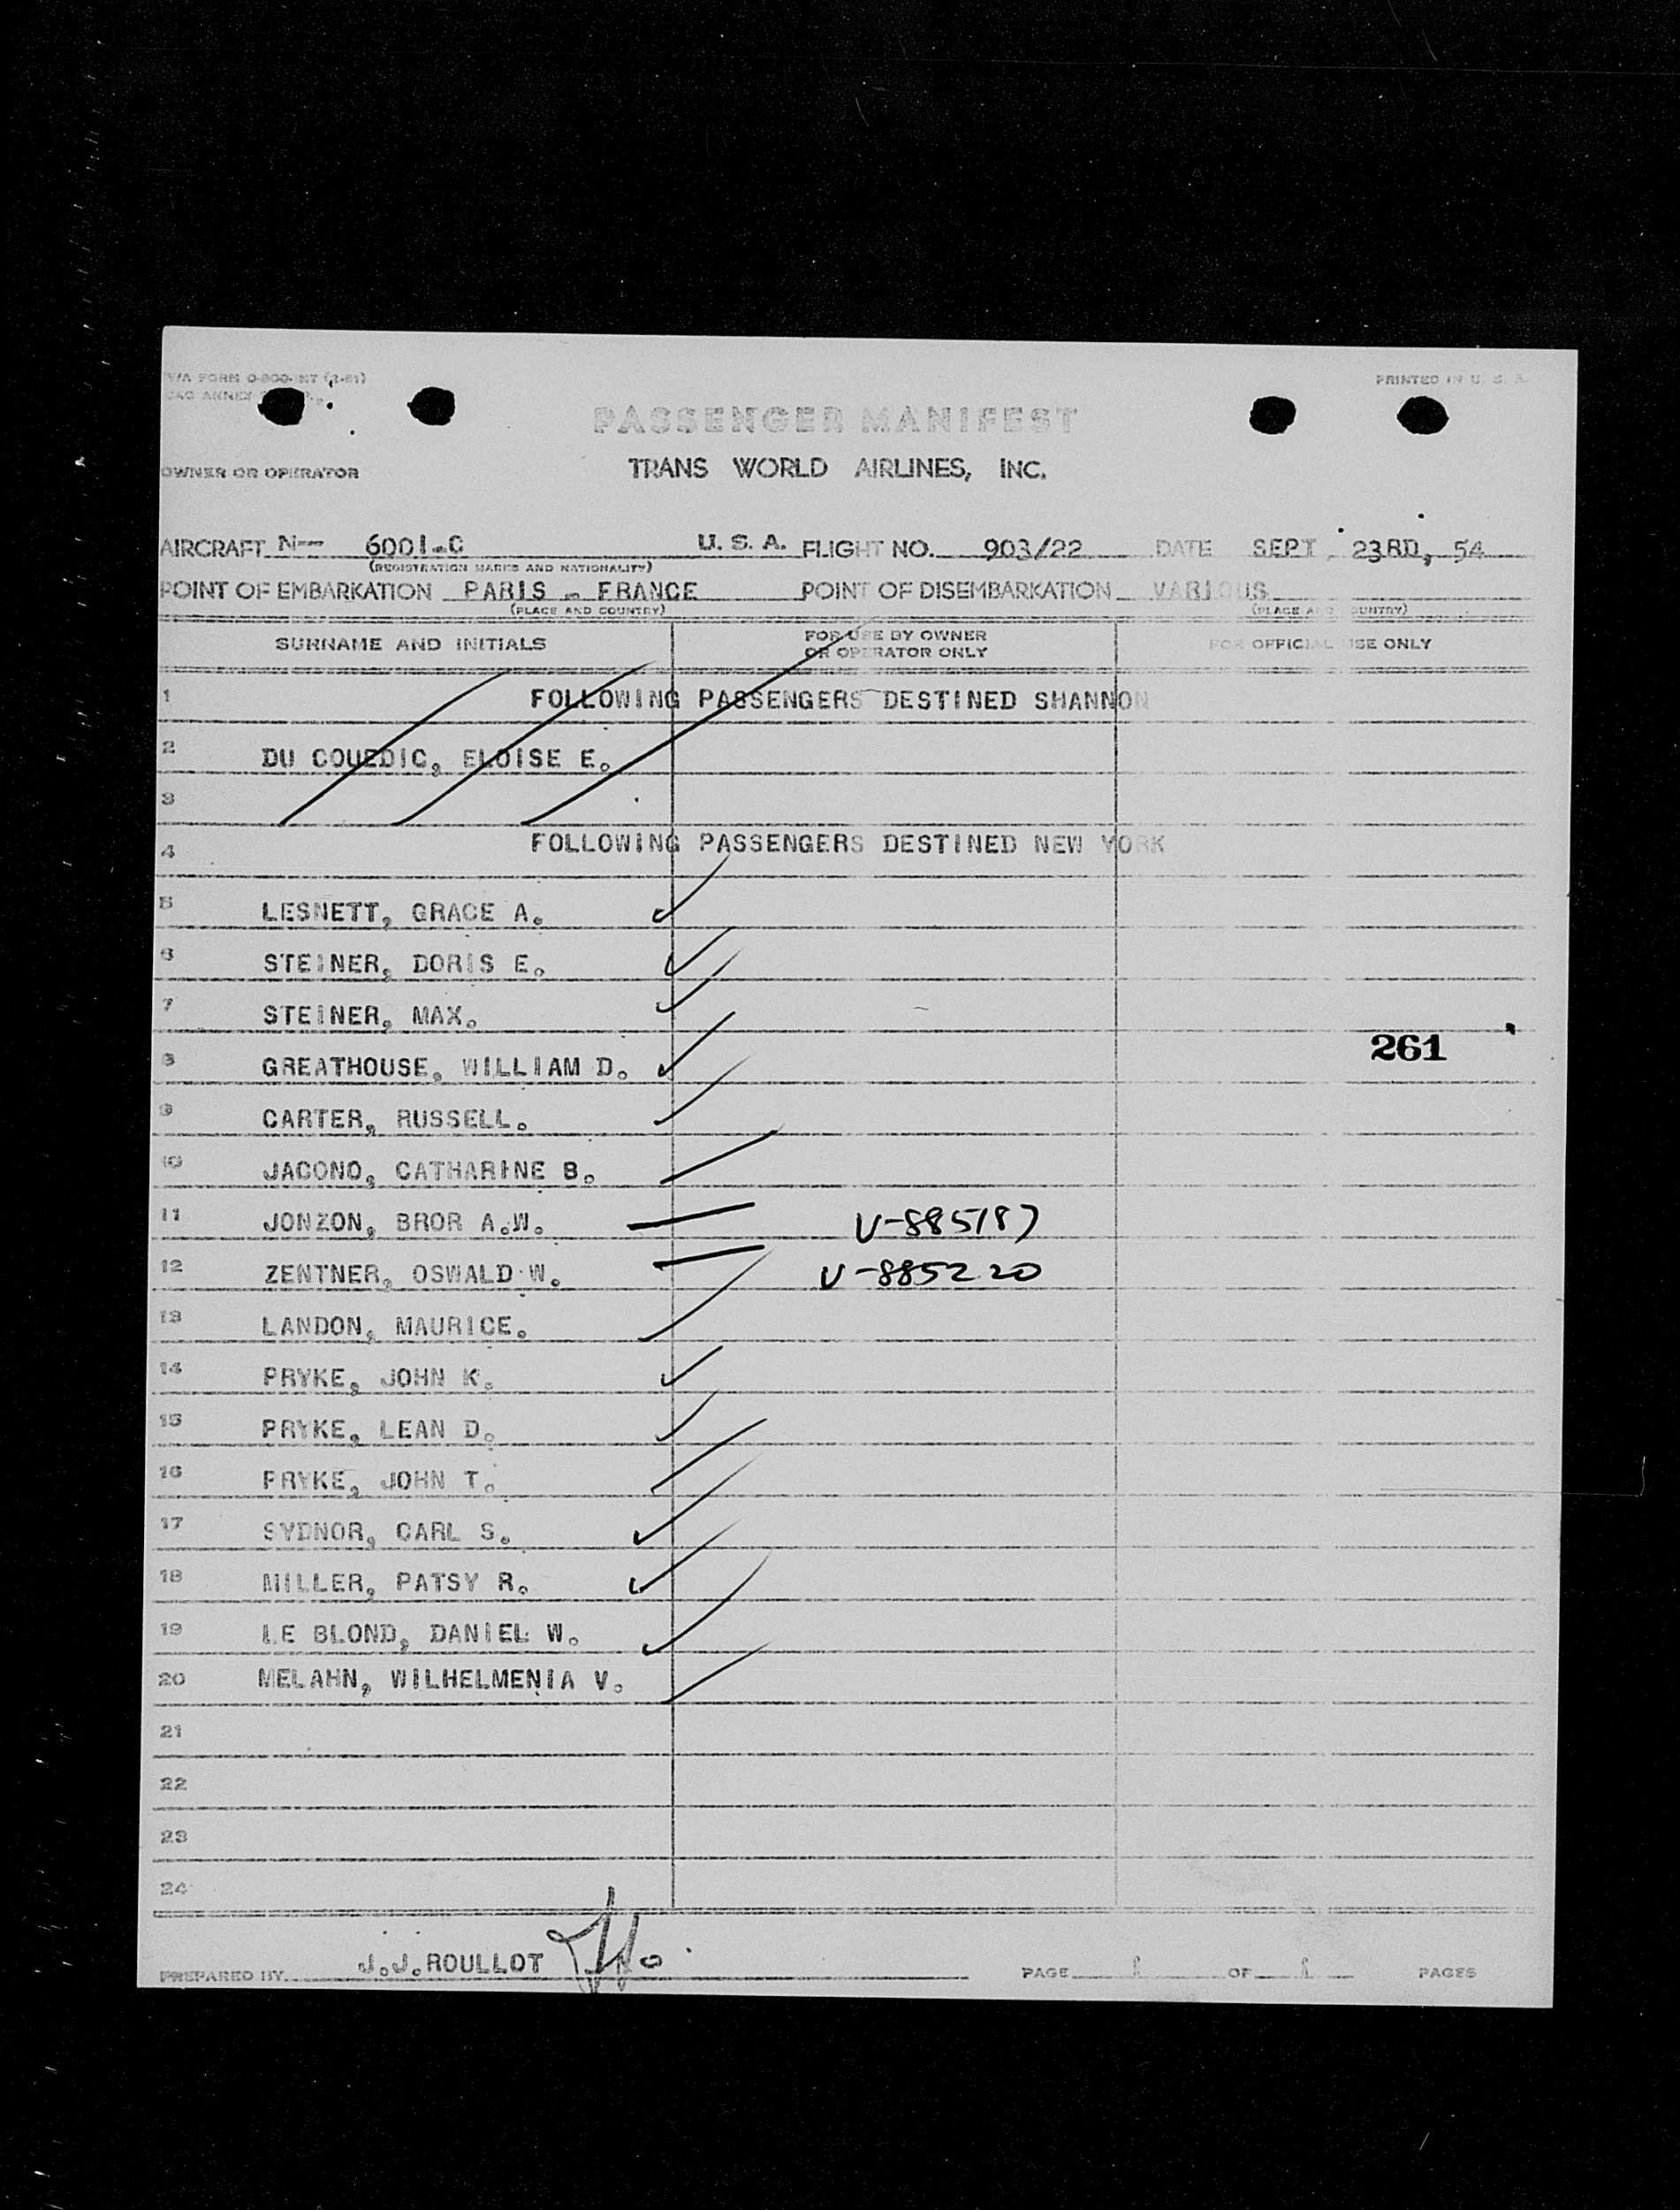 TWA FORM O-800-INT (2-51)
PRINTED IN U. S. A.
PASSENGER MANIFEST
OWNER OR OPERATOR
TRANS WORLD AIRLINES, INC.
AIRCRAFT N-- 6001-C U. S. A. FLIGHT NO. 903/22 DATE SEPT. 23RD, 54
(REGISTRATION MARKS AND NATIONALITY)
POINT OF EMBARKATION PARIS - FRANCE POINT OF DISEMBARKATION VARIOUS
(PLACE AND COUNTRY) (PLACE AND COUNTRY)
SURNAME AND INITIALS FOR USE BY OWNER OR OPERATOR ONLY FOR OFFICIAL USE ONLY
1 FOLLOWING PASSENGERS DESTINED SHANNON
2 DU COUEDIC, ELOISE E.
3
4 FOLLOWING PASSENGERS DESTINED NEW YORK
5 LESNETT, GRACE A.
6 STEINER, DORIS E.
7 STEINER, MAX.
261
8 GREATHOUSE, WILLIAM D.
9 CARTER, RUSSELL.
10 JACONO, CATHARINE B.
11 JONZON, BROR A.W. V-885187
12 ZENTNER, OSWALD W. V-885220
13 LANDON, MAURICE.
14 PRYKE, JOHN K.
15 PRYKE, LEAN D.
16 PRYKE, JOHN T.
17 SYDNOR, CARL S.
18 MILLER, PATSY R.
19 LE BLOND, DANIEL W.
20 MELAHN, WILHELMENIA V.
21
22
23
24
PREPARED BY J.J.ROULLOT PAGE 1 OF 1 PAGES